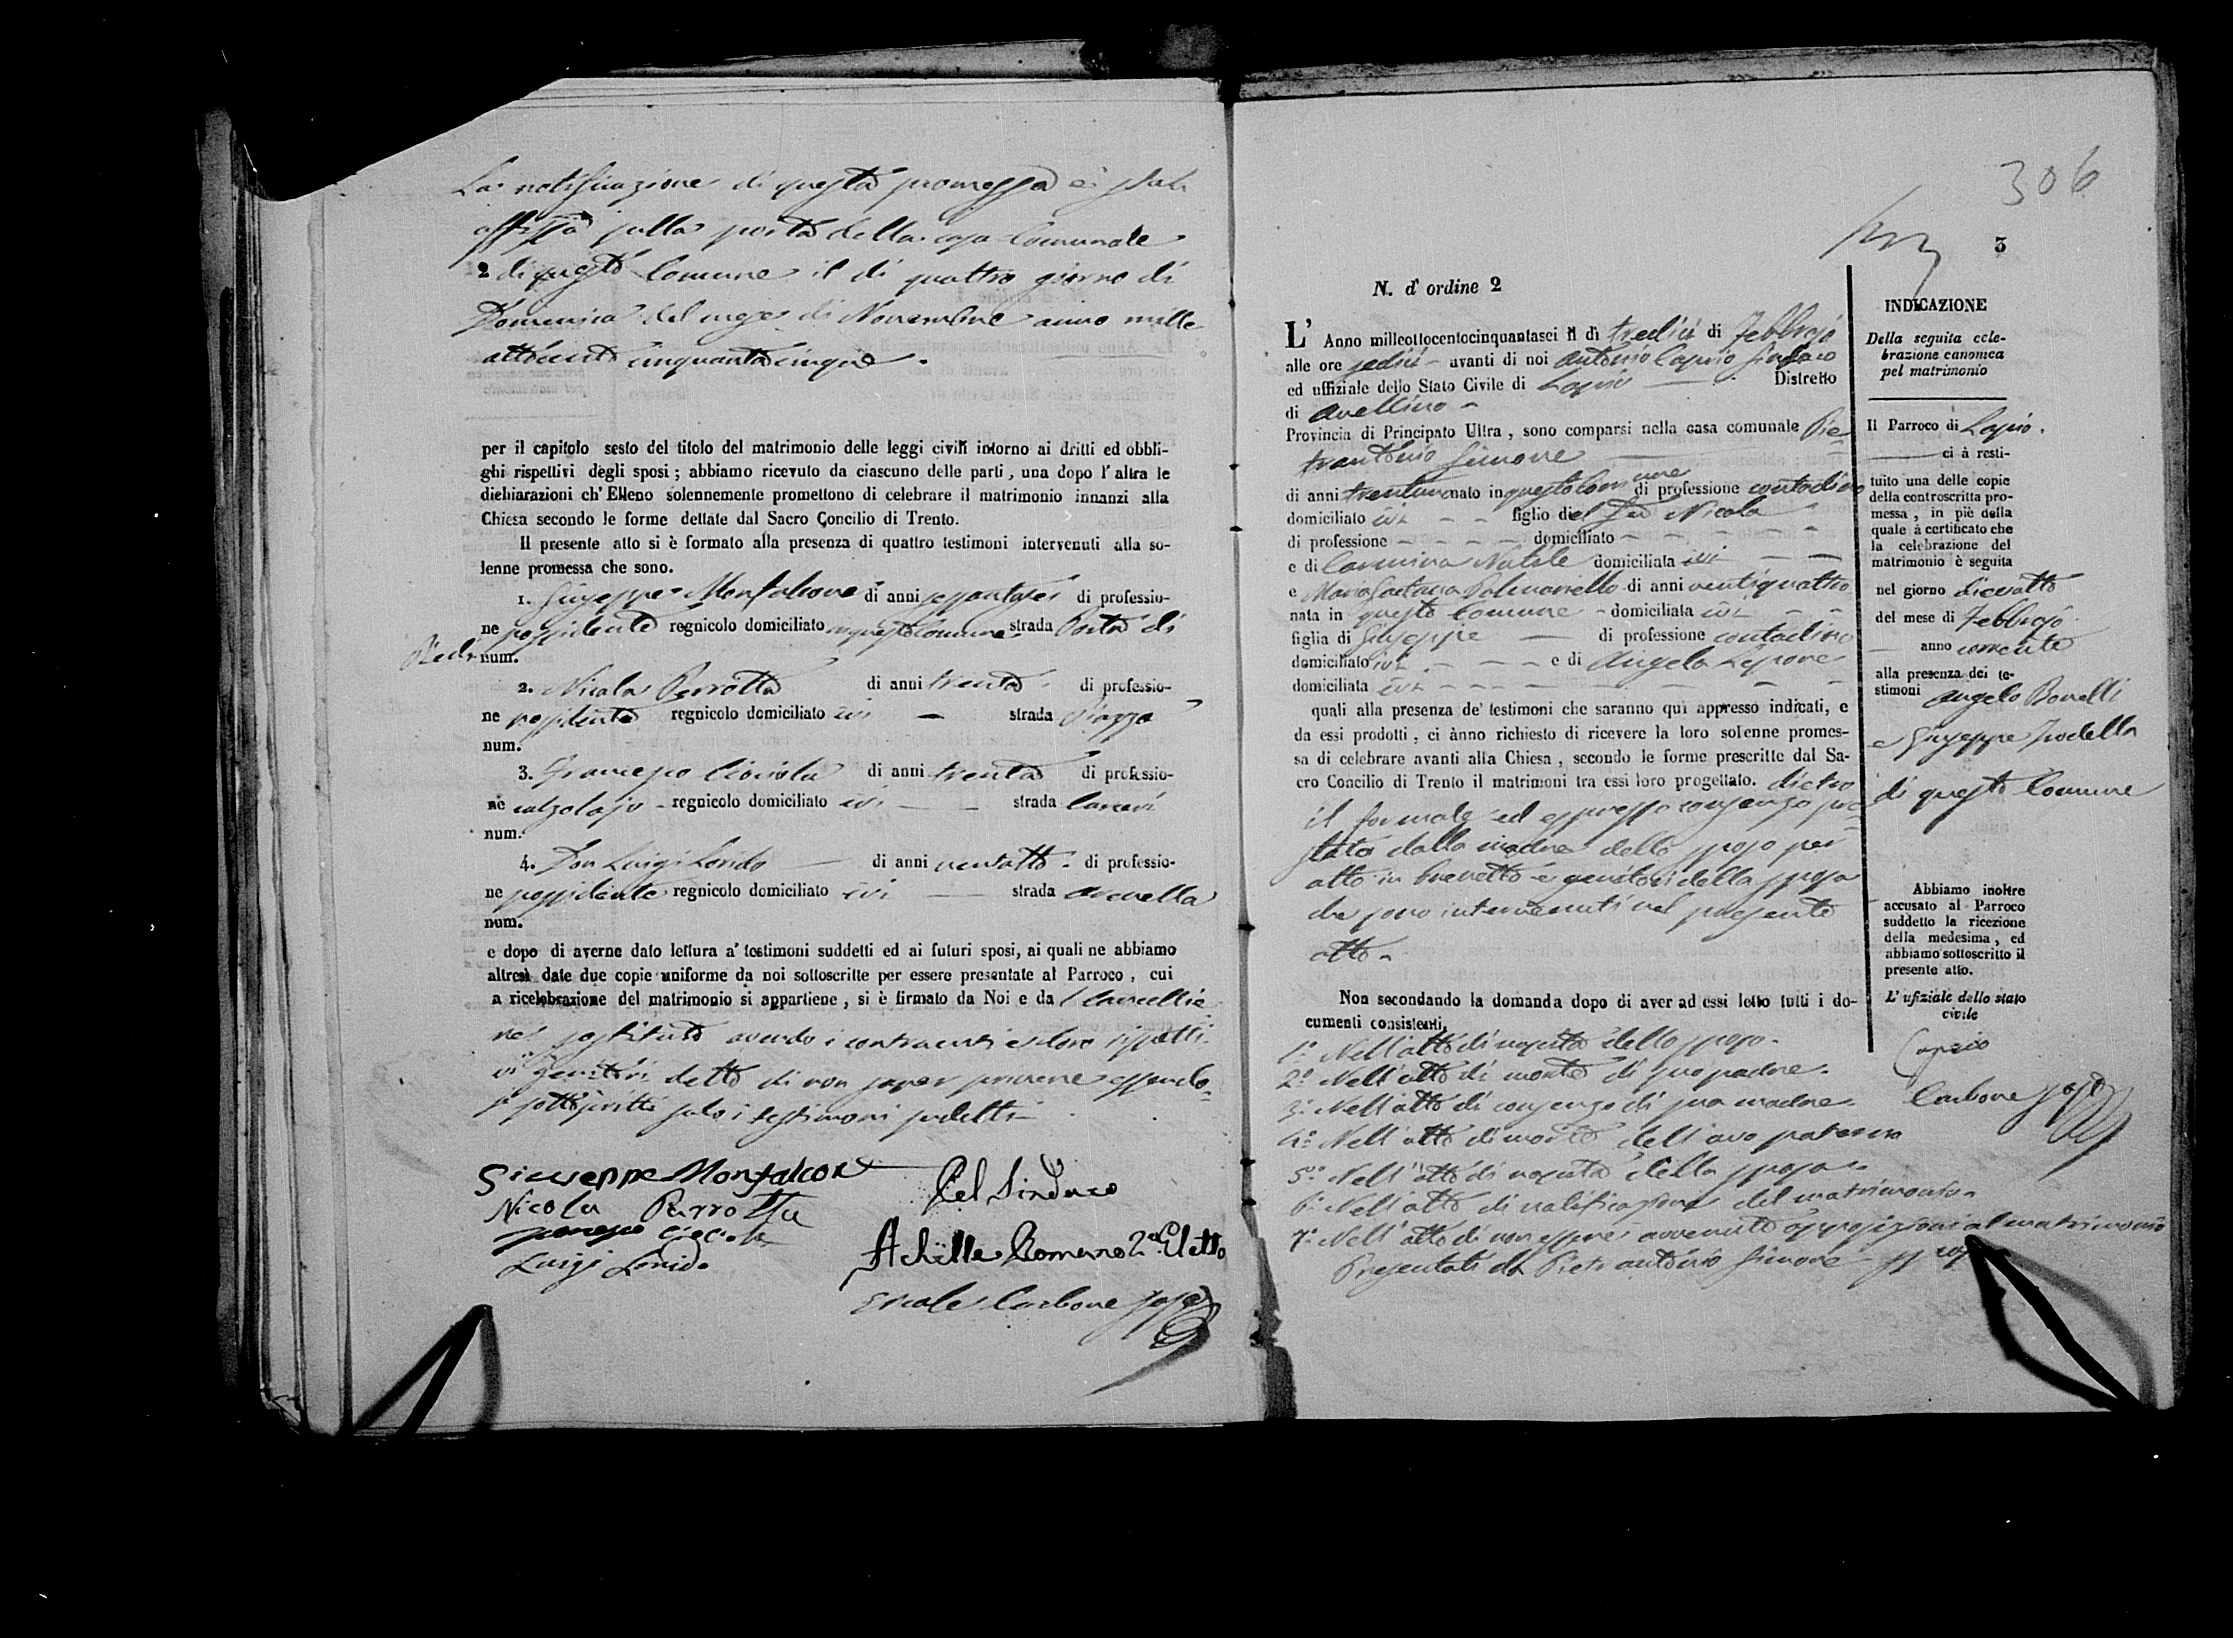 La notificazione di questa promessa è stata
affissa sulla porta della casa Comunale
2 di questo Comune il dì quattro giorno di
Domenica del mese di Novembre anno mille
ottocento cinquantacinque.
per il capitolo sesto del titolo del matrimonio delle leggi civili intorno ai dritti ed obbli-
ghi rispettivi degli sposi ; abbiamo ricevuto da ciascuno delle parti , una dopo l'altra le
dichiarazioni ch'Elleno solennemente promettono di celebrare il matrimonio innanzi alla
Chiesa secondo le forme dettate dal Sacro Concilio di Trento.
Il presente atto si è formato alla presenza di quattro testimoni intervenuti alla so-
lenne promessa che sono.
1. Giuseppe Monfalcone di anni sessantasei di professio-
ne possidente regnicolo domiciliato in questo Comune strada Porta di
num.
2. Nicola Perrotta di anni trenta di professio-
ne possidente regnicolo domiciliato ivi – strada Piazza
num.
3. Francesco Ciociola di anni trenta di professio-
ne calzolajo – regnicolo domiciliato ivi – strada Carceri
num.
4. Don Luigi Lonido – di anni ventotto – di professio-
ne possidente regnicolo domiciliato ivi – strada Arenella
num.
e dopo di averne dato lettura a' testimoni suddetti ed ai futuri sposi, ai quali ne abbiamo
altresì date due copie uniforme da noi sottoscritte per essere presentate al Parroco , cui
a ricelebrazione del matrimonio si appartiene , si è firmato da Noi e dal Cancellie
re sostituto avendo i contraenti e loro rispetti-
vi genitori detto di non saper scrivere essendo-
si sottoscritti solo i testimoni sudetti
Giuseppe Monfalcone
Nicola Perrotta
Francesco Ciociola
Luigi Lonido
Pel Sindaco
Achille Romano 2° Eletto
Ercole Carbone sost
306
3
N. d'ordine 2
L' Anno milleottocentocinquantasei il dì tredici di Febbrajo
alle ore sedici – avanti di noi Antonio Caprio Sindaco
ed uffiziale dello Stato Civile di Lapio – Distretto
di Avellino –
Provincia di Principato Ultra , sono comparsi nella casa comunale Pie-
trantonio Simone
di anni trentuno nato in questo Comune di professione contadino
domiciliato ivi – – figlio del fu Nicola
di professione – – – – domiciliato – – –
e di Carmina Natale domiciliata ivi – –
e Maria Gaetana Palmariello di anni ventiquattro
nata in questo Comune – domiciliata ivi – –
figlia di Giuseppe – di professione contadino
domiciliato ivi – – – e di Angela Lepore
domiciliata ivi – – – – – –
quali alla presenza de' testimoni che saranno qui appresso indicati, e
da essi prodotti , ci ànno richiesto di ricevere la loro solenne promes-
sa di celebrare avanti alla Chiesa , secondo le forme prescritte dal Sa-
cro Concilio di Trento il matrimoni tra essi loro progettato. dietro
il formale ed espresso consenso pre-
stato dalla madre dello sposo per
atto in brevetto e genitori della sposa
che sono intervenuti nel presente
atto –
Non secondando la domanda dopo di aver ad essi letto tutti i do-
cumenti consistenti,
1° Nell'atto di nascita dello sposo.
2° Nell'atto di morte di suo padre.
3° Nell'atto di consenso di sua madre.
4° Nell'atto di morte dell'avo paterno
5° Nell'atto di nascita della sposa.
6° Nell'atto di notificazione del matrimonio.
7° Nell'atto di non essere avvenuta opposizione al matrimonio
Presentati da Pietrantonio Simone sposo
INDICAZIONE
Della seguita cele-
brazione canonica
pel matrimonio
Il Parroco di Lapio.
ci à resti-
tuito una delle copie
della controscritta pro-
messa , in piè della
quale à certificato che
la celebrazione del
matrimonio è seguita
nel giorno diciotto
del mese di Febbrajo
anno corrente
alla presenza dei te-
stimoni Angelo Bonelli
e Giuseppe Jodella
di questo Comune
Abbiamo inoltre
accusato al Parroco
suddetto la ricezione
della medesima , ed
abbiamo sottoscritto il
presente atto.
L'ufiziale dello stato
civile
Caprio
Carbone sost